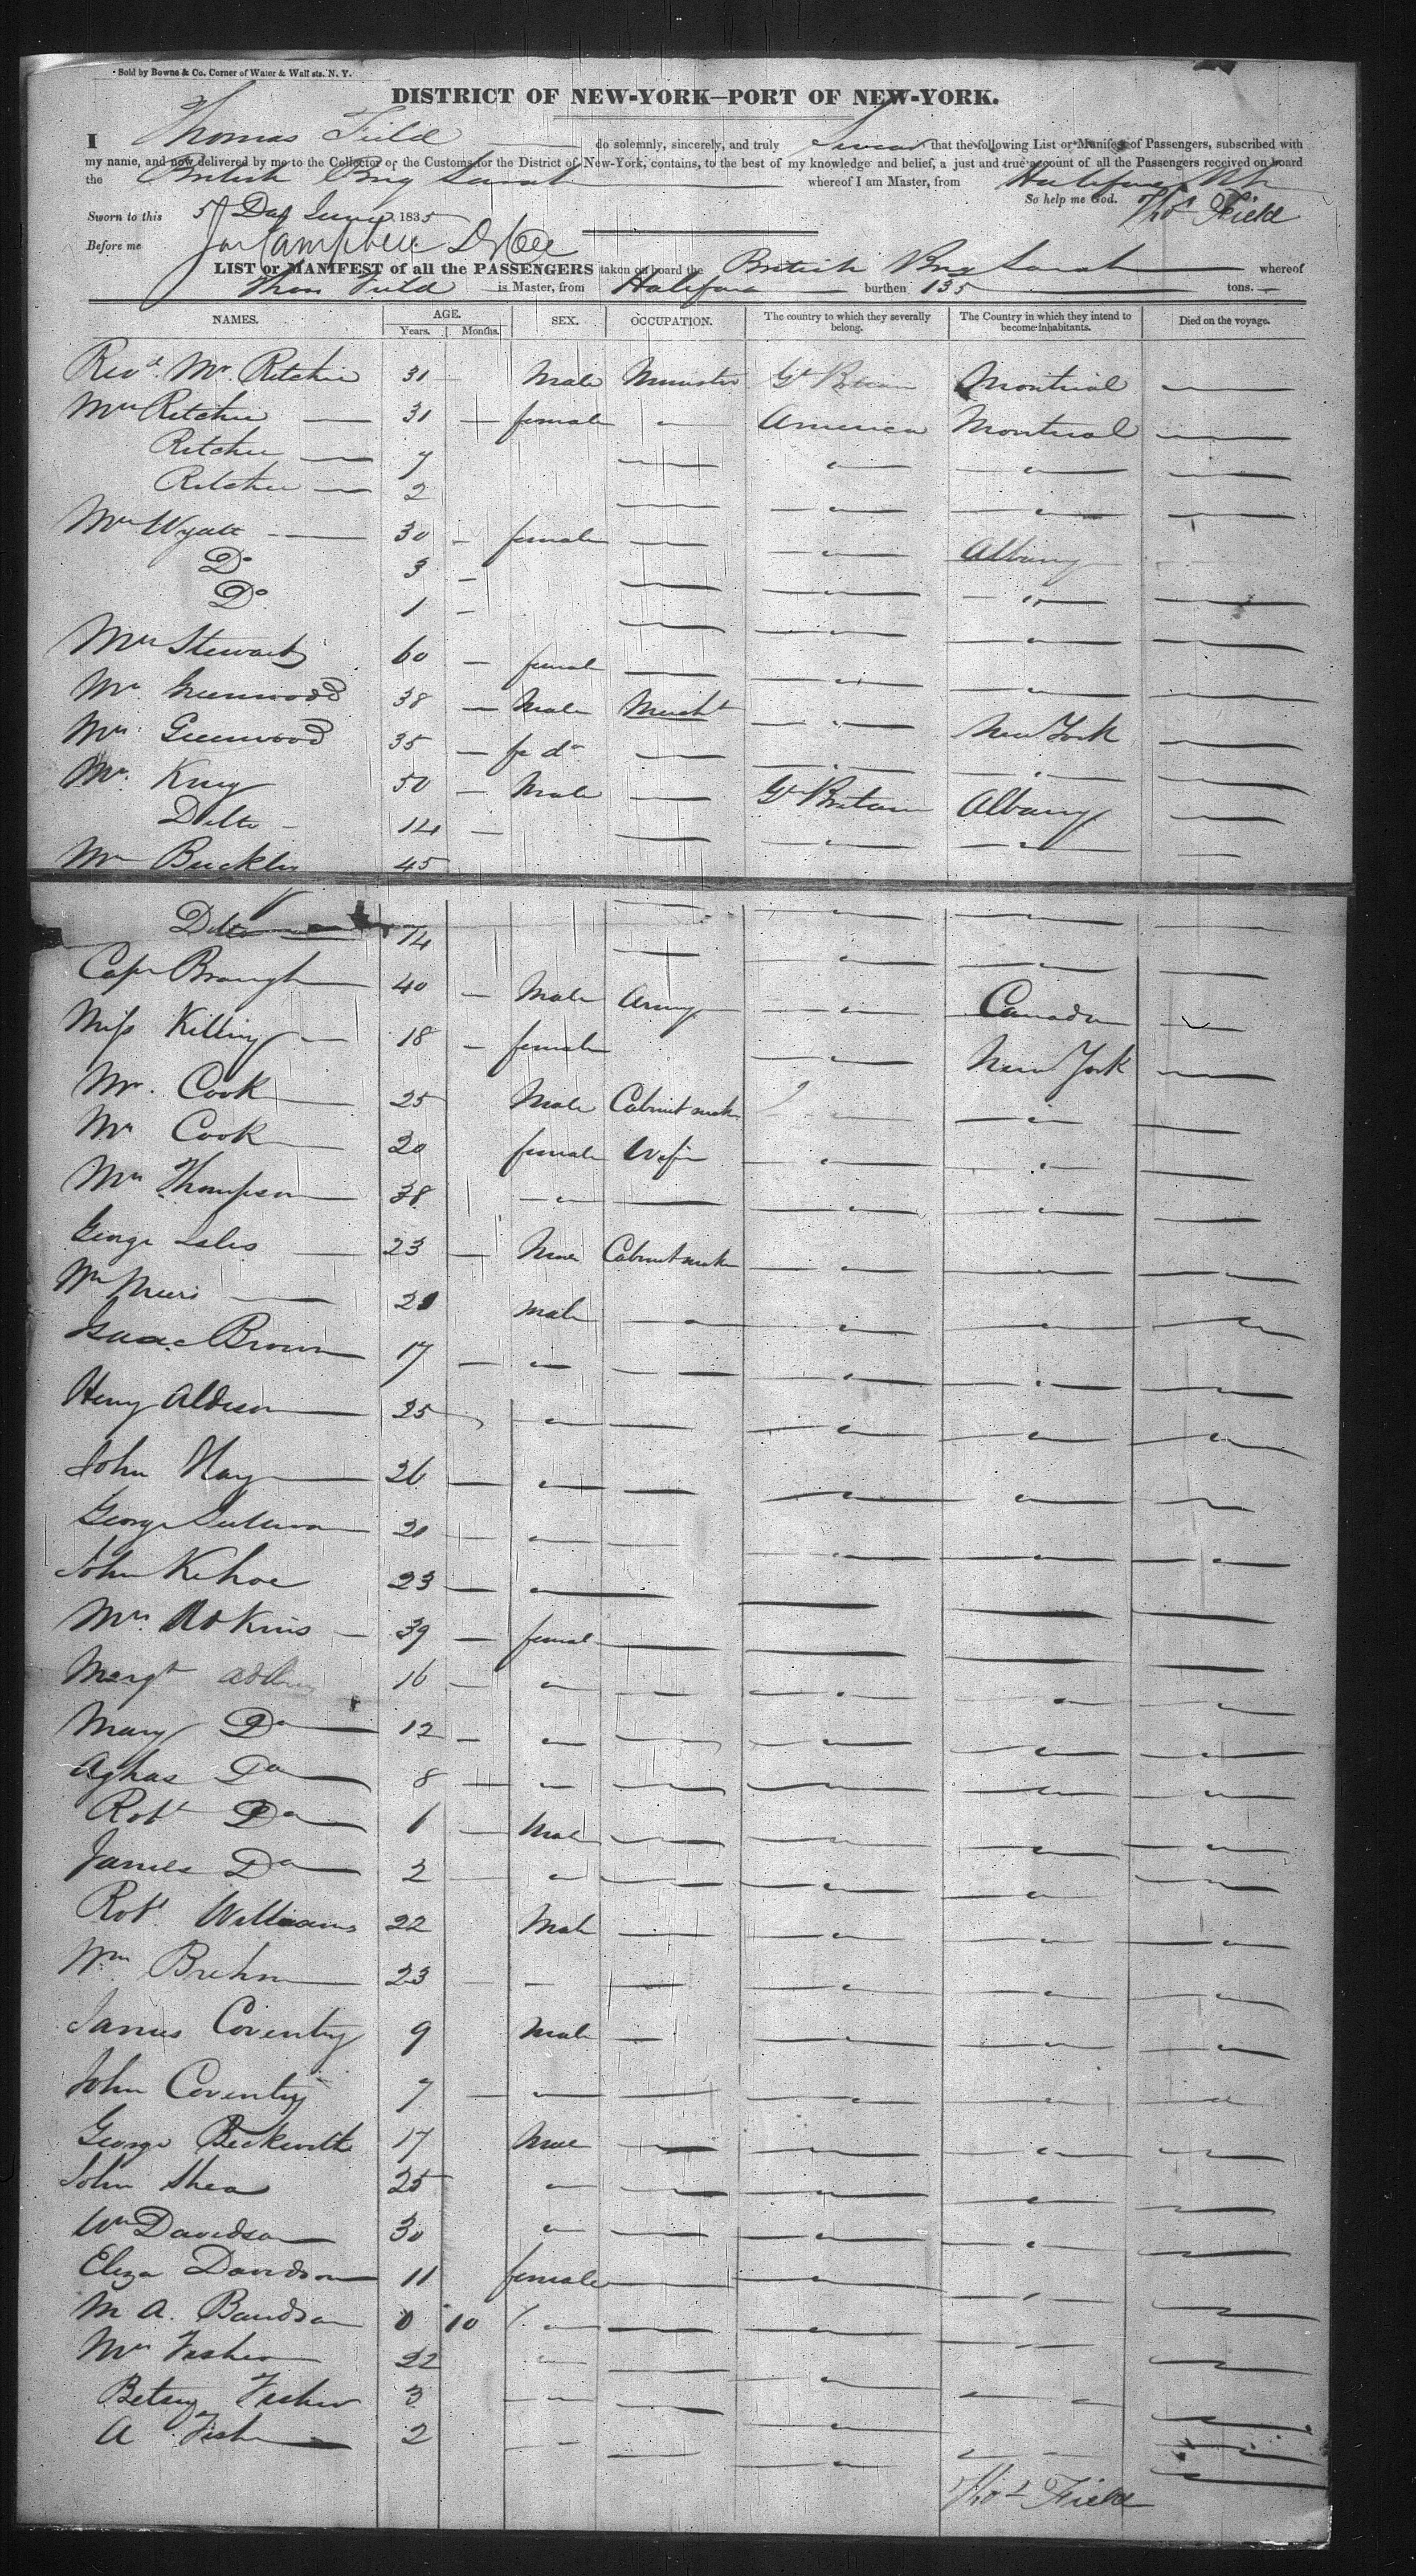 Sold by Bowne & Co. Corner of Water & Wall sts. N. Y.
DISTRICT OF NEW-YORK—PORT OF NEW-YORK.
I Thomas Field do solemnly, sincerely, and truly Swear that the following List or Manifest of Passengers, subscribed with
my name, and now delivered by me to the Collector of the Customs for the District of New-York, contains, to the best of my knowledge and belief, a just and true account of all the Passengers received on board
the British Brig Sarah whereof I am Master, from Halifax
So help me God. Thos Field
Sworn to this 5 Day June 1835
Before me Jas Campbell
LIST or MANIFEST of all the PASSENGERS taken on board the British Brig Sarah whereof
Thos Field is Master, from Halifax burthen 135 tons.
NAMES. AGE. Years. Months. SEX. OCCUPATION. The country to which they severally belong. The Country in which they intend to become Inhabitants. Died on the voyage.
Revd. Mr. Ritchie 31 Male Minister Gt Britain Montreal
Mrs Ritchie 31 female America Montreal
Ritchie 7 "
Ritchie 2 "
Mrs Wyatt 30 female " Albany
Do 3 " "
Do 1 " "
Mrs Stewart 60 female " "
Mr. Greenwood 38 Male Mercht " New York
Mrs. Greenwood 35 fe do " "
Mr. King 50 Male Gt Britain Albany
Ditto 14 " "
Mr Buckley 45 " "
Ditto 14 " "
Capn Brough 40 Male Army " Canada
Miss Killing 18 female " New York
Mr. Cook 25 Male Cabinet mak " "
Mrs Cook 20 female Wife " "
Mrs Thompson 38 " " "
George Lales 23 Male Cabinet mak " "
Wm Muir male " " "
Isaac Brown 17 " " "
Henry Aldison 25 " " " "
John Hay 26 " " "
George Sullivan " " "
John Kehoe 23 "
Mrs. Adkins 39 female
Margt Adkins 16 " " "
Mary Do 12 " " " "
Aghas Do 8 " " "
Robt Do Male " "
James Do 2 " " "
Robt Williams 22 Male " " "
Wm Brehm 23 " "
James Coventry 9 Male " "
John Coventry 7 " " "
George Beckwith 17 Male " "
John Shea 25 " " "
Wm Davidson 30 " " "
Eliza Davidson 11 female " "
M A. Davidson 0 10 " " "
Mrs Fisher 22 " "
Betsy Fisher 3 " "
A Fisher 2 "
Thos Field